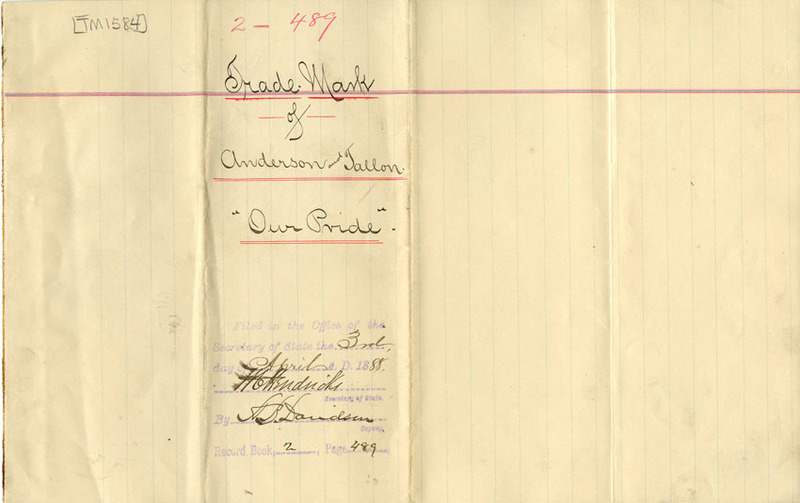 [TM1584]
2 - 489
Trade Mark
of
Anderson and Tallon.
"Our Pride".
Filed in the Office of the
Secretary of State the 3rd,
day April A. D. 1888.
W. C. Hendricks
Secretary of State.
By A. B. Davidson
Deputy.
Record Book, 2, Page 489